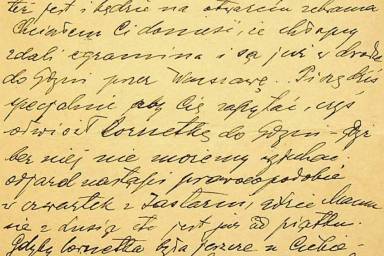 też jest i będzie na otwarciu
Chciałem Ci donieść, że chłopcy
zdali egzamina i są już w drodze
do Gdyni przez Warszawę. Piszę dziś
specjalnie aby Cię zapytać, czyś
odwiózł lornetkę do Gdyni - gdyż
bez niej nie możemy wyjechać
odjazd nastąpi prawdopodobnie
w czwartek z Jastarni, gdzie Mamusia
się z Lusią to jest już od piątku.
Gdyby lornetka była jeszcze u Ciebie-